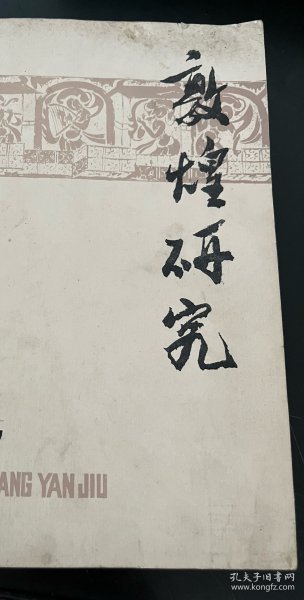 敦煌研究
ANG YAN JIU
孔夫子旧书网
www.kongfz.com